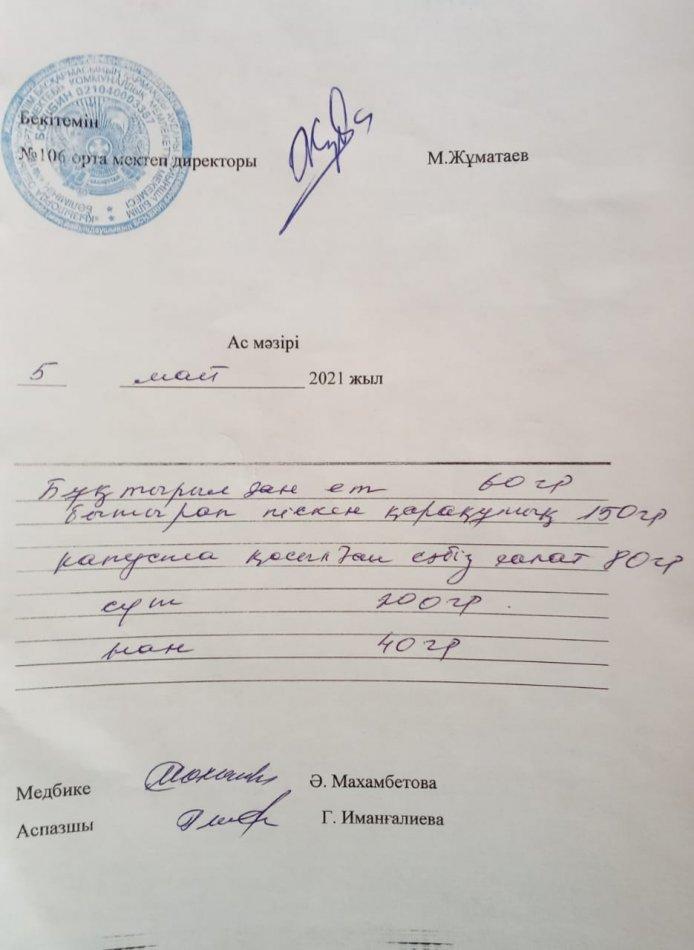 Бекітемін
№106 орта мектеп директоры М.Жұматаев
Ас мәзірі
5 май 2021 жыл
Бұқтырылған ет 60гр
бытырап піскен қарақұмық 150гр
капуста қосылған сәбіз салат 80гр
сүт 200гр.
нан 40гр
Медбике Ә. Махамбетова
Аспазшы Г. Иманғалиева